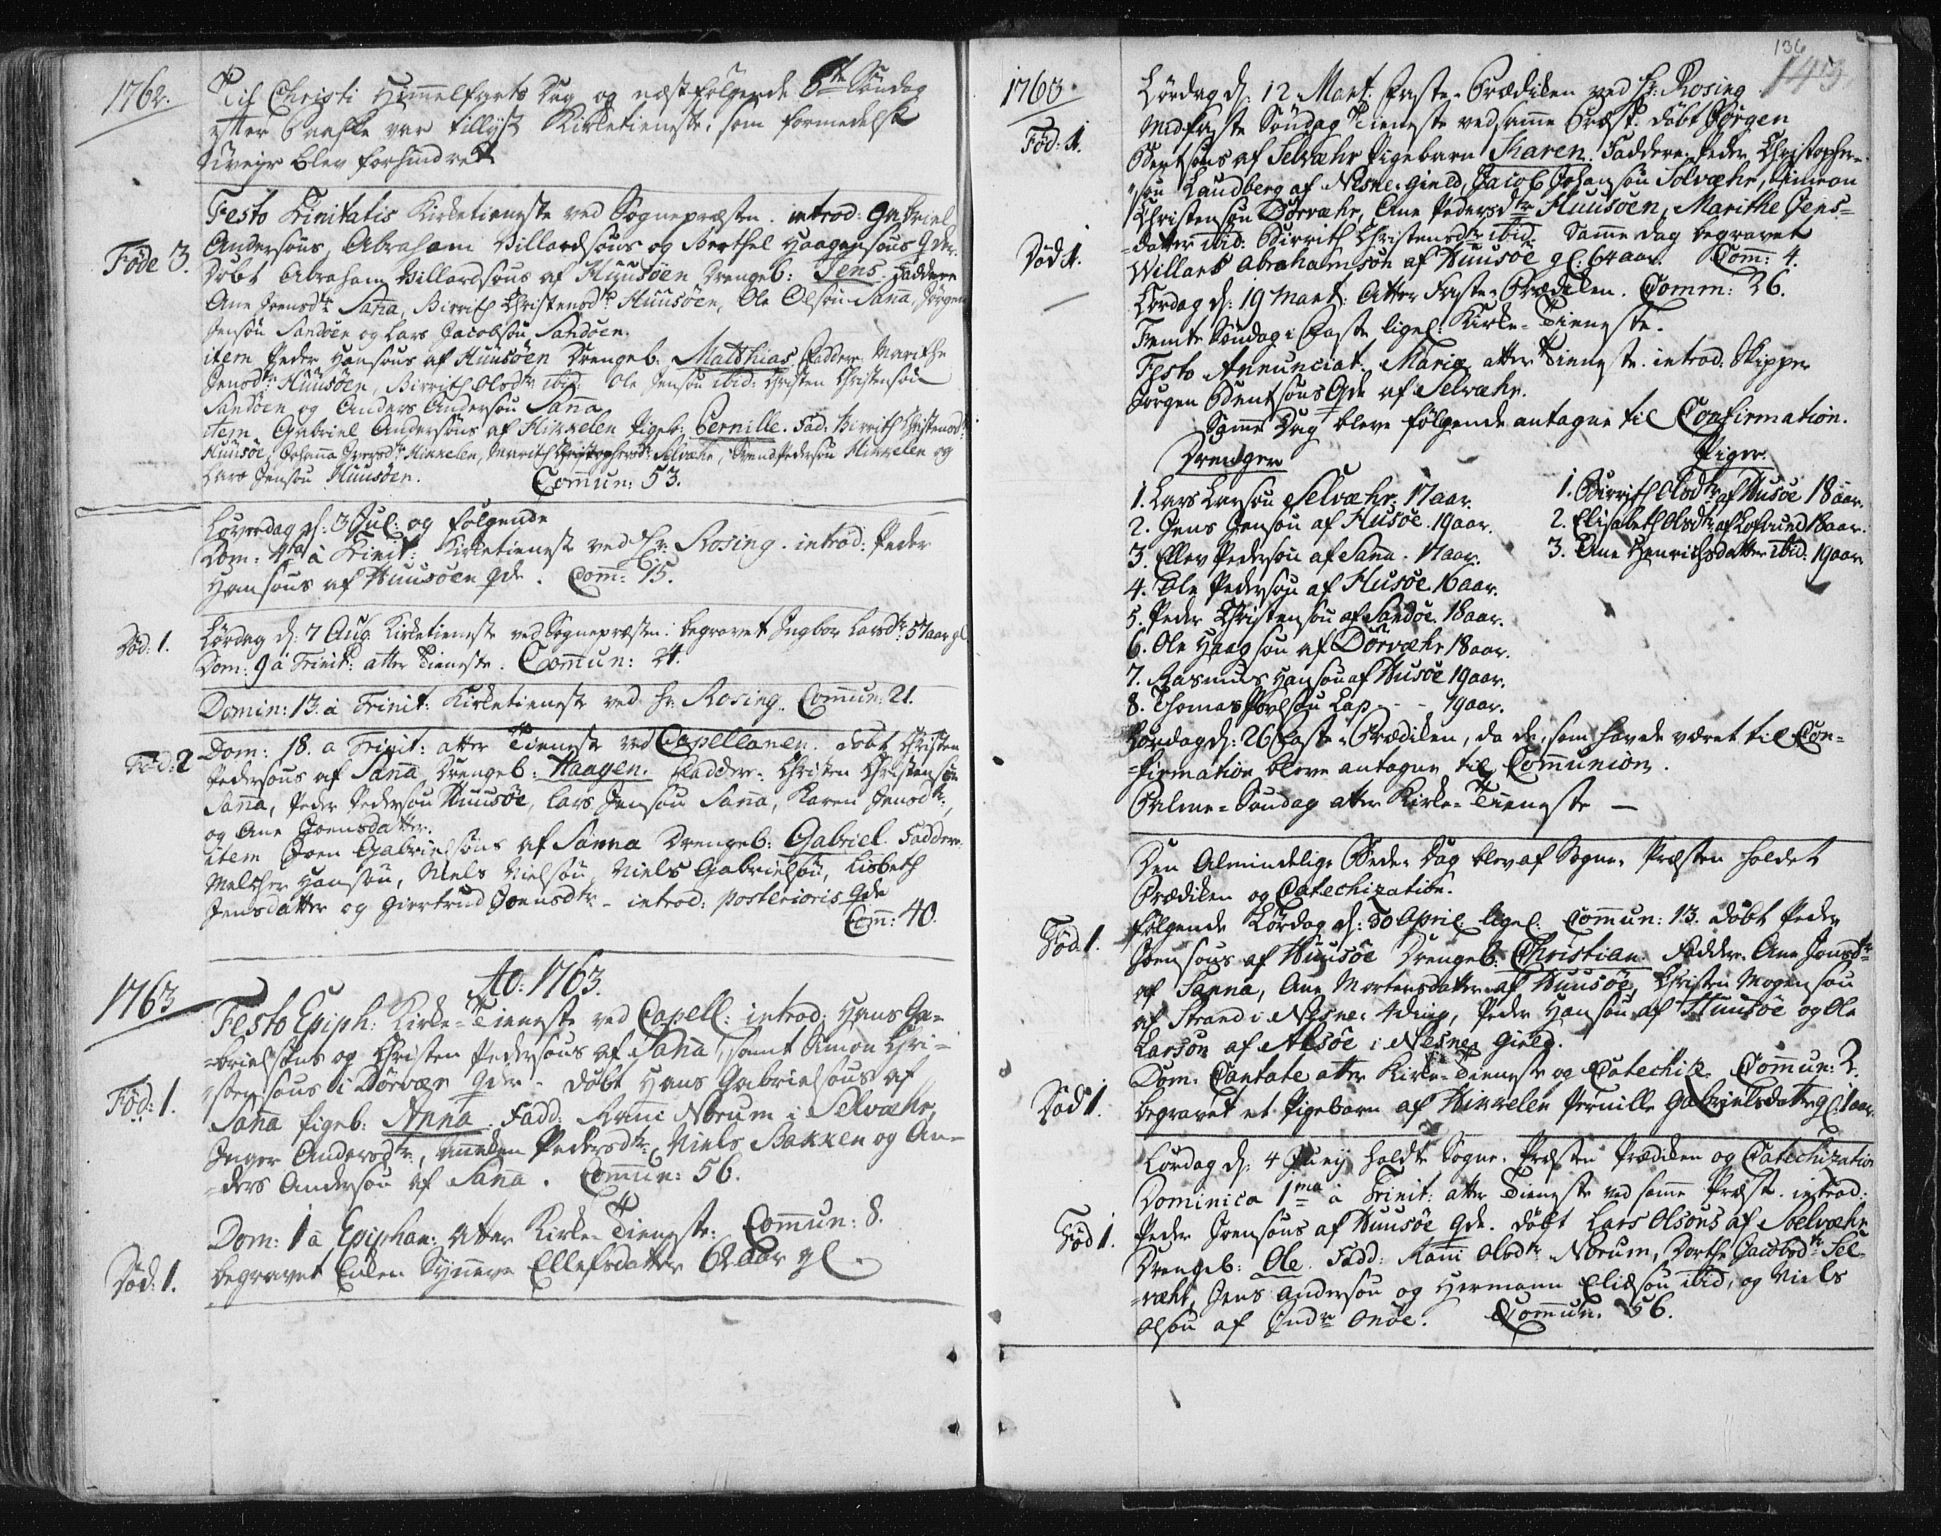 1762.
Til Christi Himmelfarts Dag og næstfølgende 6te Søndag
efter Paaske var tillyst Kirketieneste, som formedelst
Uveyr blev forhindret
Festo Trinitatis Kirketieneste ved Sognepræsten. introd: Gabriel
Andersøns, Abraham Villardsøns og Berthel Haagensøns Qdr.
Føde 3.
Døbt Abraham Villardsøns af Huusöen Drengeb: Jens. Faddere
Ane Joensdtr Sana, Birrith Christensdtr Huusöen, Ole Olsøn Sana, Jörgen
Jensøn Sandöen og Lars Jacobsøn Sandöen.
item Peder Hansøns af Huusöen Drengeb: Matthias Fadder. Marithe
Jensdtr Huusöen, Birrith Olsdtr ibid: Ole Jensøn ibid: Christen Christensøn
Sandöen og Anders Andersøn Sana
item Gabriel Andersøns af Hikkelen Pigeb: Pernille. Fad: Birrith Christensdtr
Huusöe, Johanna Iversdtr Hikkelen, Marith Christophersdtr Selvæhr, Svend Pedersøn Hikkelen og
Lars Jensøn Huusöen. Commun: 53.
Løverdag d: 3 Jul: og følgende
Dom: 4ta à Trinit: Kirketieneste ved Hr. Rosing. introd: Peder
Hansøns af Huusöen Qde. Com: 15.
Død: 1.
Lørdag d: 7 Aug. Kirketieneste ved Sognepræsten. begravet Ingbor Larsdtr 57 aar gl.
Dom: 9 à Trinit: atter Tieneste. Commun: 24.
Domin: 13. à Trinit: Kirketieneste ved Hr. Rosing. Commun: 21.
Fød: 2
Dom: 18. a Trinit: atter Tieneste ved Capellanen. døbt Christen
Pedersøns af Sana Drengeb: Haagen. Faddere: Christen Christensøn
Sana, Peder Pedersøn Huusöe, Lars Jensøn Sana, Karen Jensdtr.
og Ane Joensdatter.
item Joen Gabrielsøns af Sanna Drengeb: Gabriel. Faddere
Melcher Hansøn, Niels Nielsøn, Niels Gabrielsøn, Lisbeth
Jensdatter og Giertrud Joensdtr - introd: posterioris Qde
Com: 40.
1763
Ao: 1763.
Festo Epiph: Kirke-Tieneste ved Capell: introd: Hans Ga-
=brielsøns og Christen Pedersøns af Sana, samt Simon Chri-
stensøns i Dörvær Qdr - døbt Hans Gabrielsøns af
Fød: 1.
Sana Pigeb: Anna. Fadd: Norum i Selvæhr,
Inger Andersdtr, Pedersdtr, Niels Bakken og An-
=ders Andersøn af Sana. Commun: 56.
Dom: 1 a Epiphan: Atter Kirke-Tieneste: Commun: 8.
Død: 1.
begravet Enken Synneve Ellefsdatter 62 aar gl.
136
143
1763
Lørdag d: 12 Mart: Faste-Prædiken ved Hr: Rosing
Midfaste Søndag Tieneste ved samme Præst. døbt Jørgen
Fød: 1.
Bentsøns af Selvæhr Pigebarn Karen. Faddere: Peder Christopher-
søn Laudberg af Nesne-Gield, Jacob Johansøn Solvæhr, Simeon
Christensøn Dörvæhr, Ane Pedersdtr Huusöen, Marithe Jens=
=datter ibid: Birrith Christensdtr ibid: Samme dag begravet
Død 1.
Willars Abrahamsøn af Huusöe gl: 64 aar. Com: 4.
Lørdag d: 19 Mart: Atter Faste-Prædiken. Comm: 26.
Femte Søndag i Faste ligel: Kirke-Tieneste.
Festo Annunciat: Mariæ atter Tieneste. introd: Skipper
Jørgen Bentsøns Qde af Selvæhr.
Samme Dag bleve følgende antagne til Confirmation.
Drenger
Piger.
1. Lars Larsøn Selvæhr. 17 aar.
1. Birrith Olsdtr af Husöe 18 aar.
2. Jens Jensøn af Husöe. 19 aar.
2. Elisabeth Olsdtr af Lofsund 18 aar.
3. Ellev Pedersøn af Sana. 17 aar.
3. Ane Henrichsdatter ibid. 19 aar
4. Ole Pedersøn af Husöe. 16 aar.
5. Peder Christensøn af Sandöe. 18 aar.
6. Ole Haagsøn af Dörvæhr 18 aar.
7. Rasmus Hansøn af Husöe 19 aar.
8. Thomas Povlsøn Lap - - 19 aar.
Lørdag d: 26 Faste-Prædiken, da de, som havde været til Con=
=firmation bleve antagne til Communion.
Palme-Søndag atter Kirke-Tieneste -
Den Almindelige Bede-Dag blev af Sogne-Præsten holdet
Prædiken og Catechization.
Fød. 1.
følgende Lørdag d: 30 April ligel: Commun: 13. døbt Peder
Joensøns af Huusöe Drengeb: Christian. Fadder. Ane Jonsdtr
af Sanna, Ane Mortensdatter af Huusöe, Christen Mogensøn
af Strand i Nesne 4ding, Peder Hansøn af Huusöe og Ole
Larsøn af Alsöe i Nesne-Gield.
Dom: Cantate atter Kirke-Tieneste og Catechiz. Commun: 2.
Død 1.
begravet et Pigebarn af Hikkelen Pernille Gabrielsdatter gl: 1 aar.
Lørdag d: 4 Junij holdte Sogne-Præsten Prædiken og Catechization
Dominica 1ma à Trinit: atter Tieneste ved samme Præst. introd:
Fød 1.
Peder Joensøns af Huusöe Qde. døbt Lars Olsøns af Soelvæhr
Drengeb: Ole. Fadd: Olsdtr Norum, Dorthe Jacobsdtr Sel-
=væhr, Jens Andersøn og Hermann Eliæsøn ibid, og Niels
Olsøn af Indre Onöe. Commun. 56.